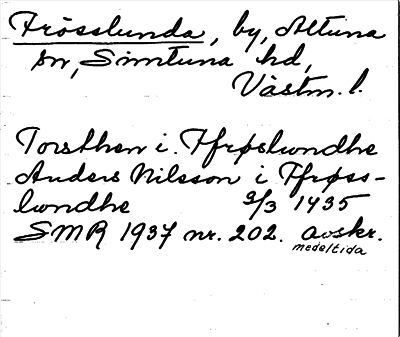 Frösslunda, by, Altuna
sn, Simtuna hd,
Västm. l.
Torsthen i Ffrøslundhe
Anders Nilsson i Ffrøss-
lundhe 2/3 1435
SMR 1937 nr. 202. avskr.
medeltida